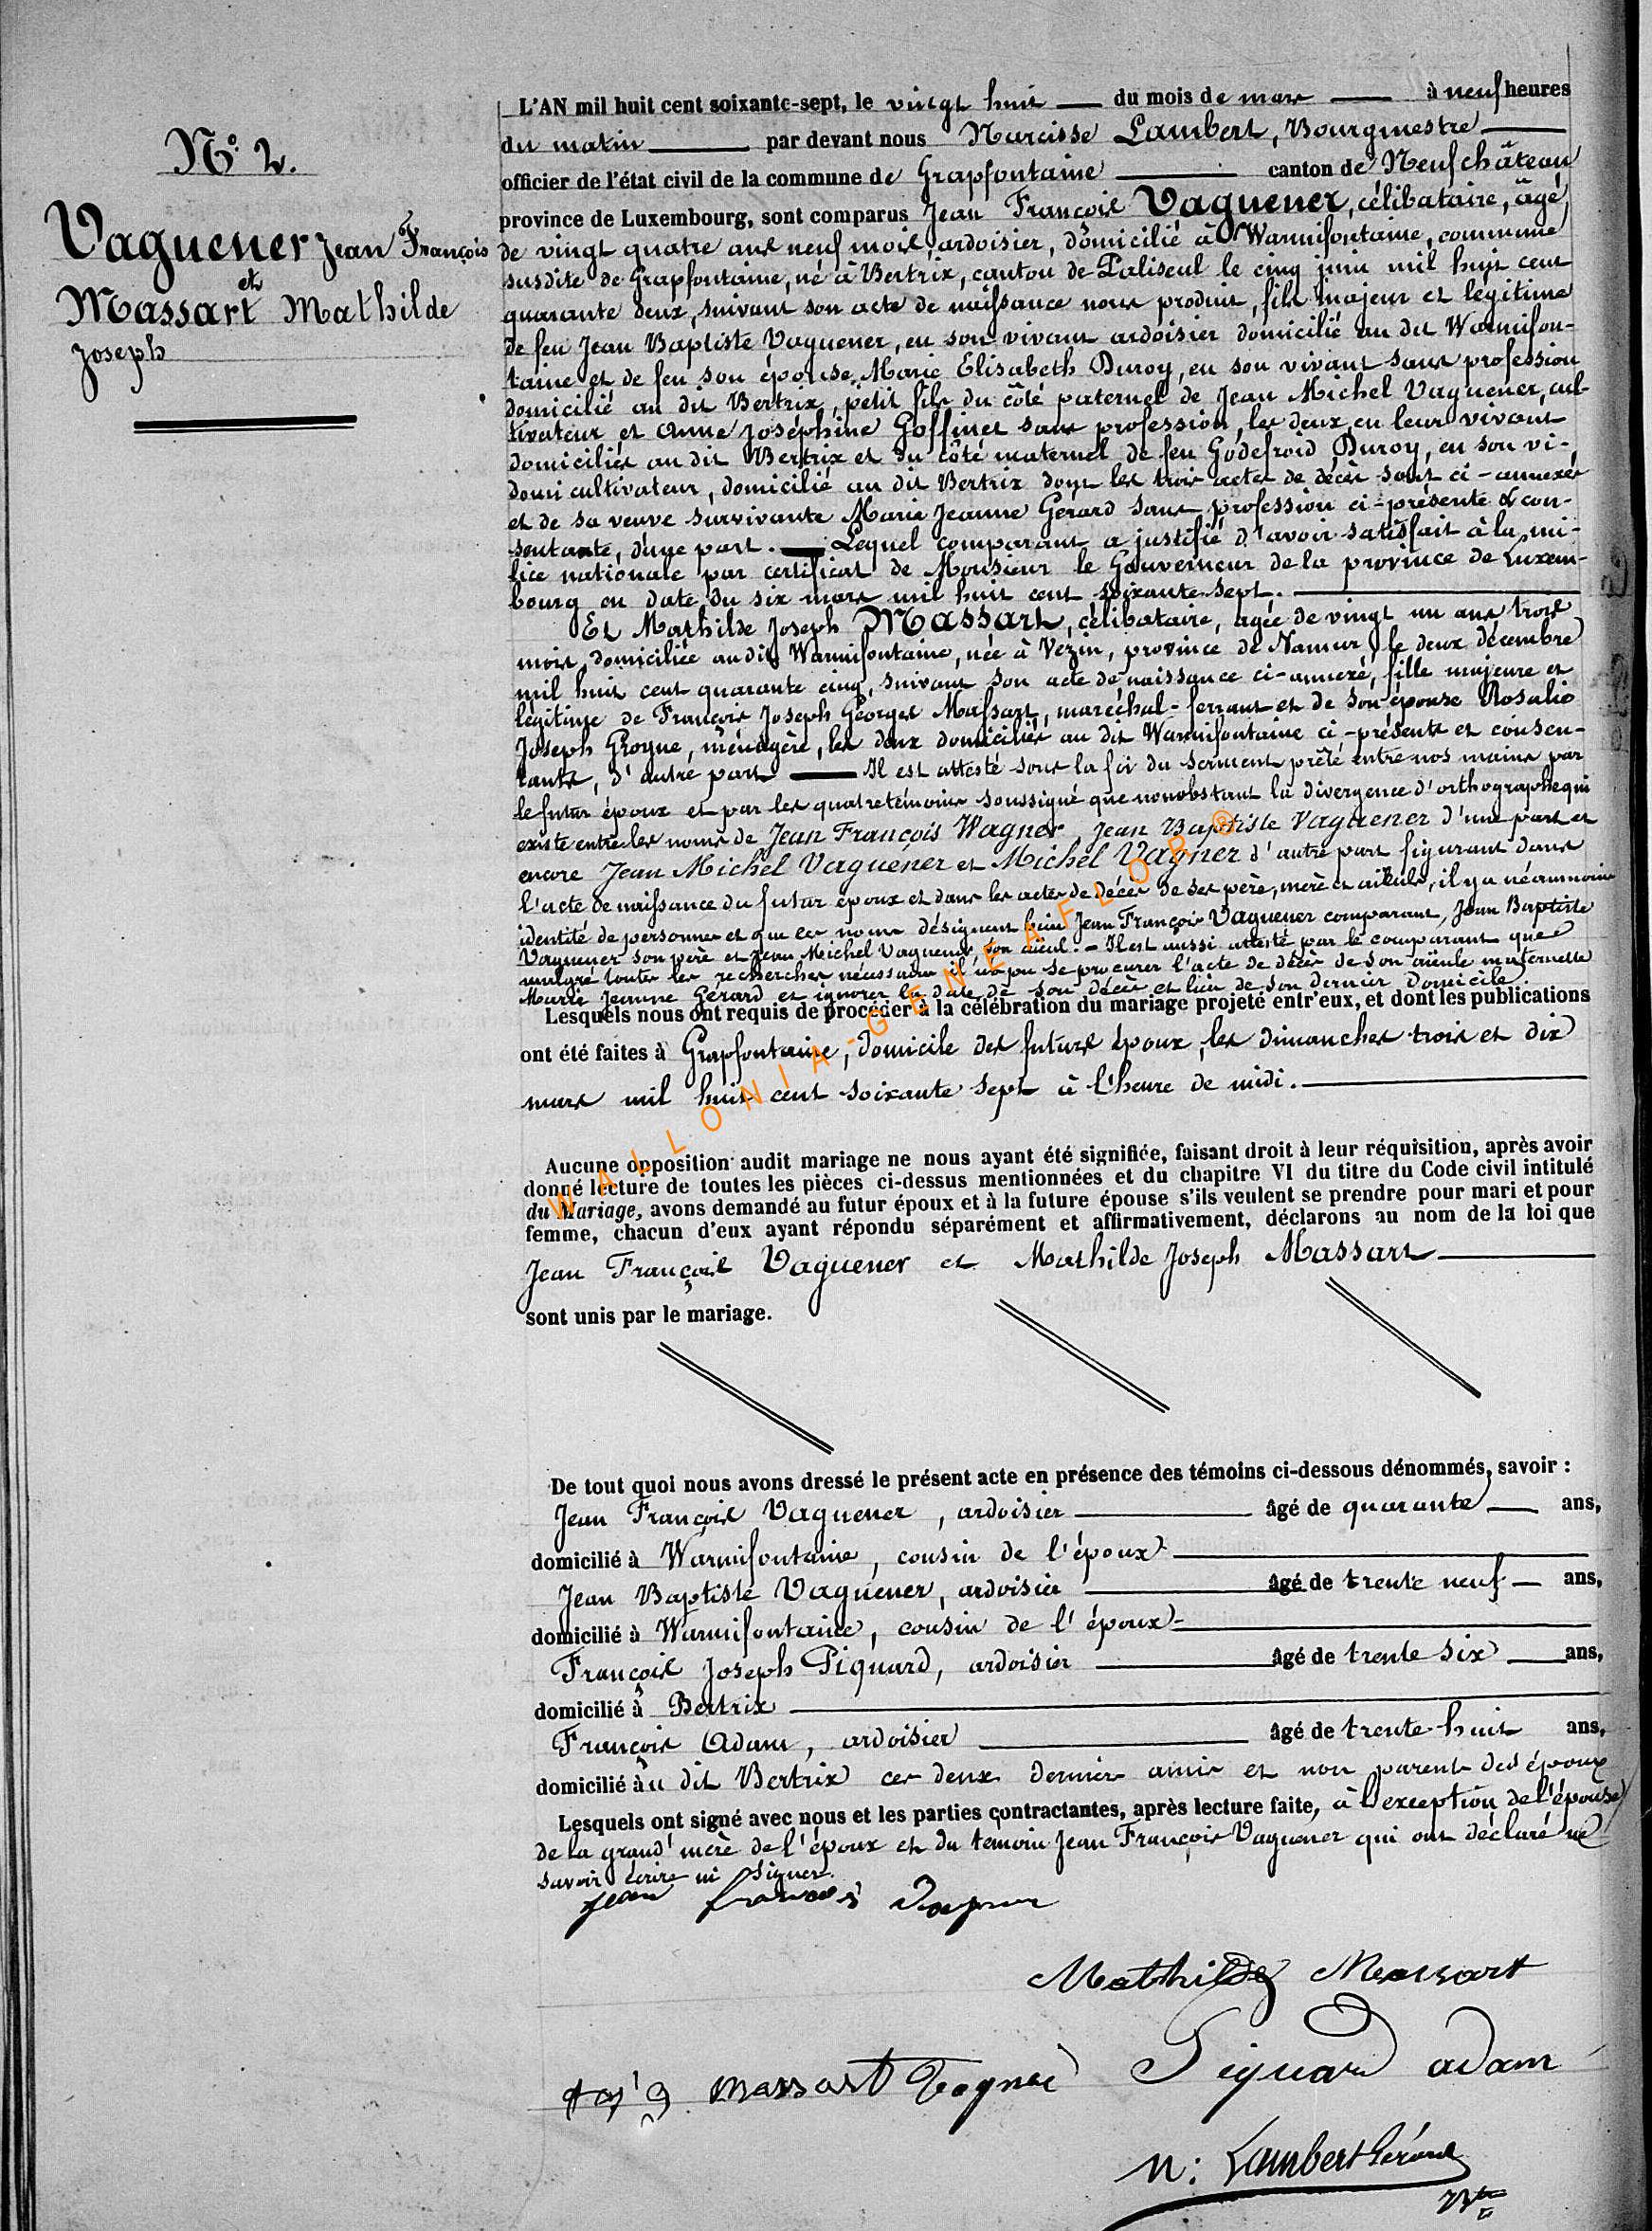 N° 2.
Vaguener Jean François
et
Massart Mathilde
Joseph
L'AN mil huit cent soixante-sept, le vingt huit du mois de mars à neuf heures
du matin par devant nous Narcisse Lambert, Bourgmestre
officier de l'état civil de la commune de Grapfontaine canton de Neufchâteau
province de Luxembourg, sont comparus Jean François Vaguener, célibataire, âgé
de vingt quatre ans neuf mois, ardoisier, domicilié à Warmifontaine, commune
susdite de Grapfontaine, né à Bertrix, canton de Paliseul le cinq juin mil huit cent
quarante deux, suivant son acte de naissance nous produit, fils majeur et légitime
de feu Jean Baptiste Vaguener, en son vivant ardoisier domicilié au dit Warmifon-
taine et de feu son épouse Marie Elisabeth Duroy, en son vivant sans profession
domicilié au dit Bertrix, petit fils du côté paternel de Jean Michel Vaguener, cul-
tivateur et Anne Joséphine Goffinet sans profession, les deux en leur vivant
domiciliés au dit Bertrix et du côté maternel de feu Godefroid Duroy, en son vi-
cultivateur, domicilié au dit Bertrix dont les trois actes de décès sont ci-annexés
et de sa veuve survivante Marie Jeanne Gérard sans profession ci-présente & con-
sentante, d'une part. Lequel comparant a justifié d'avoir satisfait à la mi-
lice nationale par certificat de Monsieur le Gouverneur de la province de Luxem-
bourg en date du six mars mil huit cent soixante sept.
Et Mathilde Joseph Massart, célibataire, agée de vingt un ans trois
mois, domiciliée audit Warmifontaine, née à Vezin, province de Namur, le deux décembre
mil huit cent quarante cinq, suivant son acte de naissance ci-annexé, fille majeure et
légitime de François Joseph Georges Massart, maréchal-ferrant et de son épouse Rosalie
Joseph Groyne, ménagère, les deux domiciliés au dit Warmifontaine ci-présents et consen-
tants, d'autre part Il est attesté sous la foi du serment prêté entre nos mains par
le futur époux et par les quatre témoins soussigné que nonobstant la divergence d'orthographe qui
existe entre les noms de Jean François Wagner, Jean Baptiste Vaguener d'une part et
encore Jean Michel Vaguener et Michel Vagner d'autre part figurant dans
l'acte de naissance du futur époux et dans les actes de décès de ses père, mère et aïeuls, il y a néanmoins
identité de personnes et que ces noms désignent bien Jean François Vaguener comparant, Jean Baptiste
Vaguener son père et Jean Michel Vaguener, son aïeul. - Il est aussi attesté par le comparant que
malgré toutes les recherches nécessaires il n'a pu se procurer l'acte de décès de son aïeule maternelle
Marie Jeanne Gérard et ignorer la date de son décès et lieu de son dernier domicile.
Lesquels nous ont requis de procéder à la célébration du mariage projeté entr'eux, et dont les publications
ont été faites à Grapfontaine, domicile des futurs époux, les dimanches trois et dix
mars mil huit cent soixante sept à l'heure de midi.
Aucune opposition audit mariage ne nous ayant été signifiée, faisant droit à leur réquisition, après avoir
donné lecture de toutes les pièces ci-dessus mentionnées et du chapitre VI du titre du Code civil intitulé
du Mariage, avons demandé au futur époux et à la future épouse s'ils veulent se prendre pour mari et pour
femme, chacun d'eux ayant répondu séparément et affirmativement, déclarons au nom de la loi que
Jean François Vaguener et Mathilde Joseph Massart
sont unis par le mariage.
De tout quoi nous avons dressé le présent acte en présence des témoins ci-dessous dénommés, savoir :
Jean François Vaguener, ardoisier âgé de quarante ans,
domicilié à Warmifontaine, cousin de l'époux
Jean Baptiste Vaguener, ardoisier âgé de trente neuf ans,
domicilié à Warmifontaine, cousin de l'époux
François Joseph Piquard, ardoisier âgé de trente six ans,
domicilié à Bertrix
François Adam, ardoisier âgé de trente huit ans,
domicilié au dit Bertrix ces deux derniers amis et non parents des époux
Lesquels ont signé avec nous et les parties contractantes, après lecture faite, à l'exception de l'épouse
de la grand'mère de l'époux et du témoin Jean François Vaguener qui ont déclaré ne
savoir écrire ni signer.
Jean François Vagner
Mathilde Massart
Massart Vagner Piquard Adam
N: Lambert Gérard
WALLONIA-GENEAFLOR®